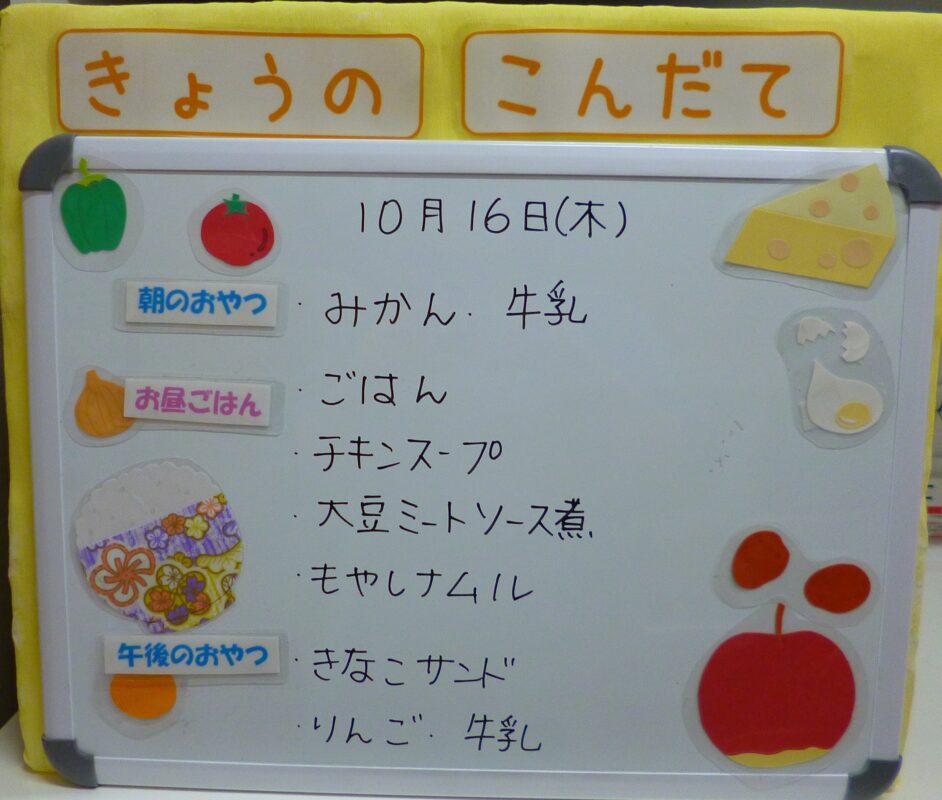 きょうの こんだて
10月16日(木)
朝のおやつ ・みかん・牛乳
お昼ごはん ・ごはん
・チキンスープ
・大豆ミートソース煮
・もやしナムル
午後のおやつ ・きなこサンド
・りんご・牛乳